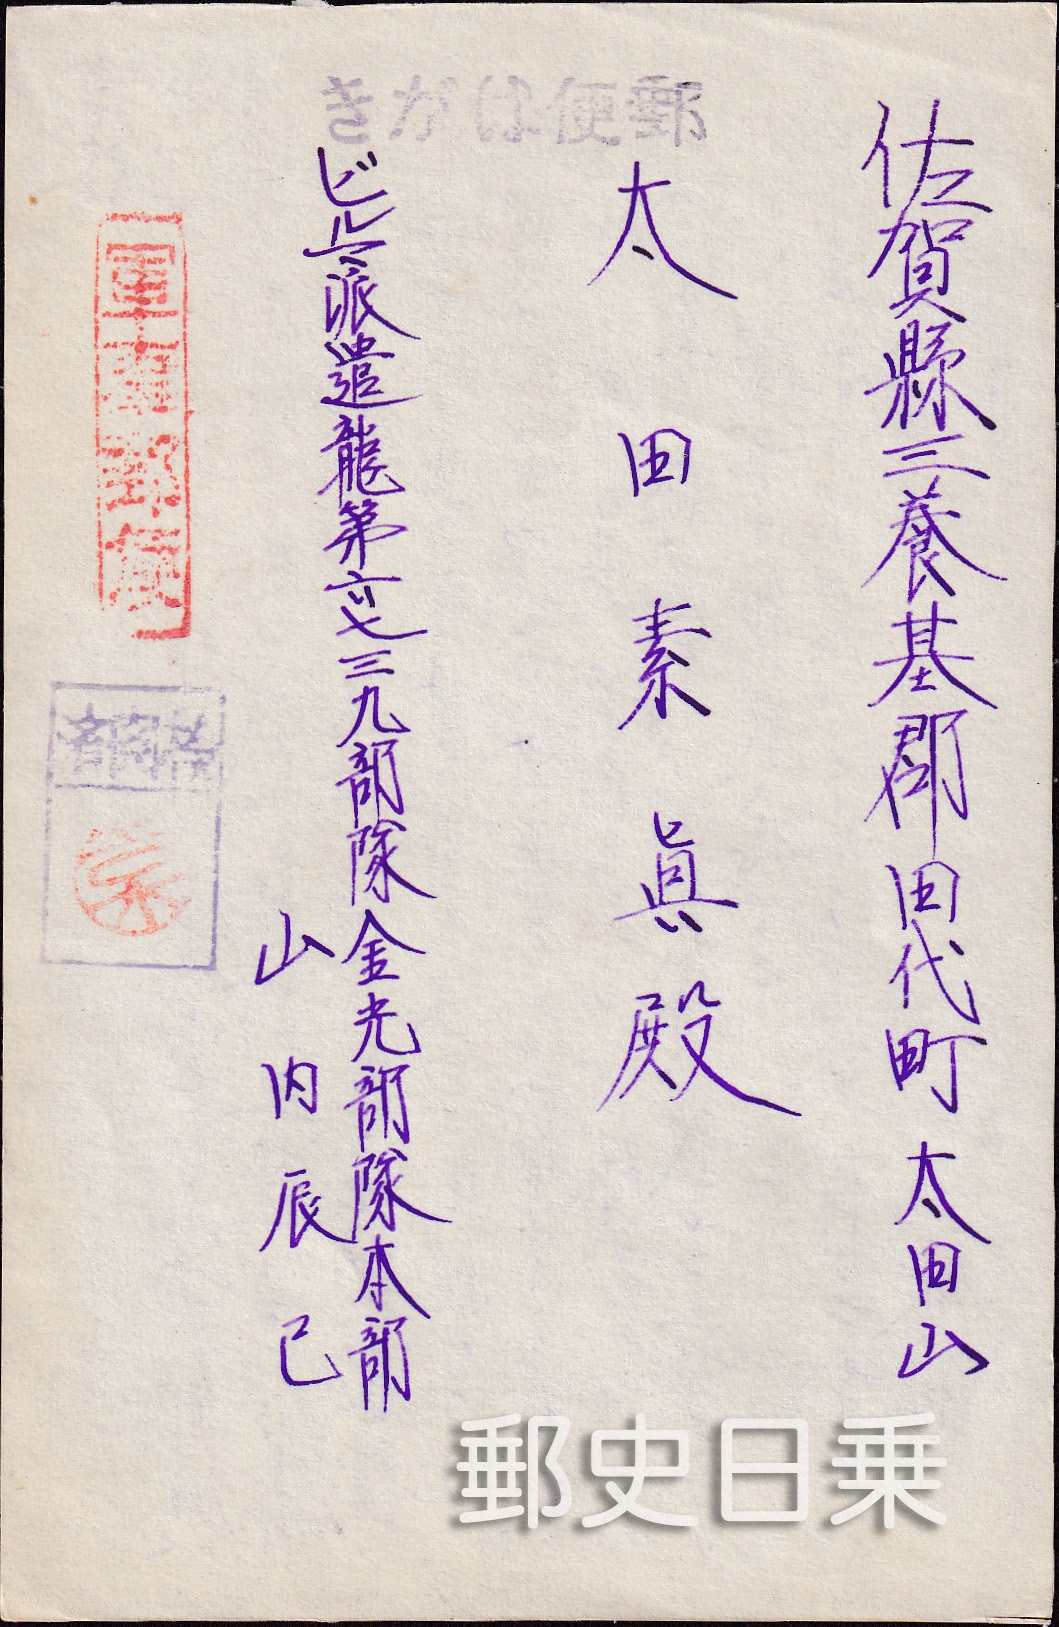 郵便はがき
佐賀縣三養基郡田代町太田山
太田素眞殿
ビルマ派遣龍第六七三九部隊金光部隊本部
山内辰己
軍事郵便
検閲者
郵史日乗